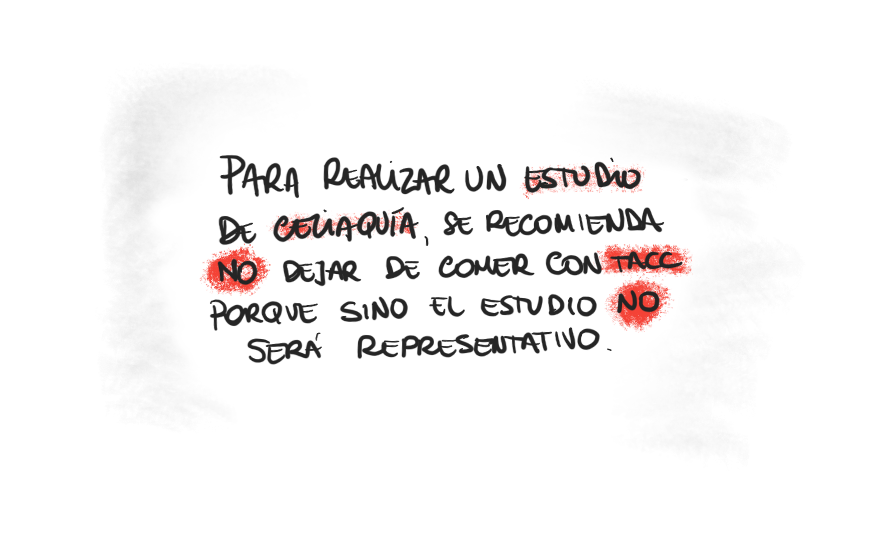 PARA REALIZAR UN ESTUDIO
DE CELIAQUÍA, SE RECOMIENDA
NO DEJAR DE COMER CON TACC
PORQUE SINO EL ESTUDIO NO
SERÁ REPRESENTATIVO.